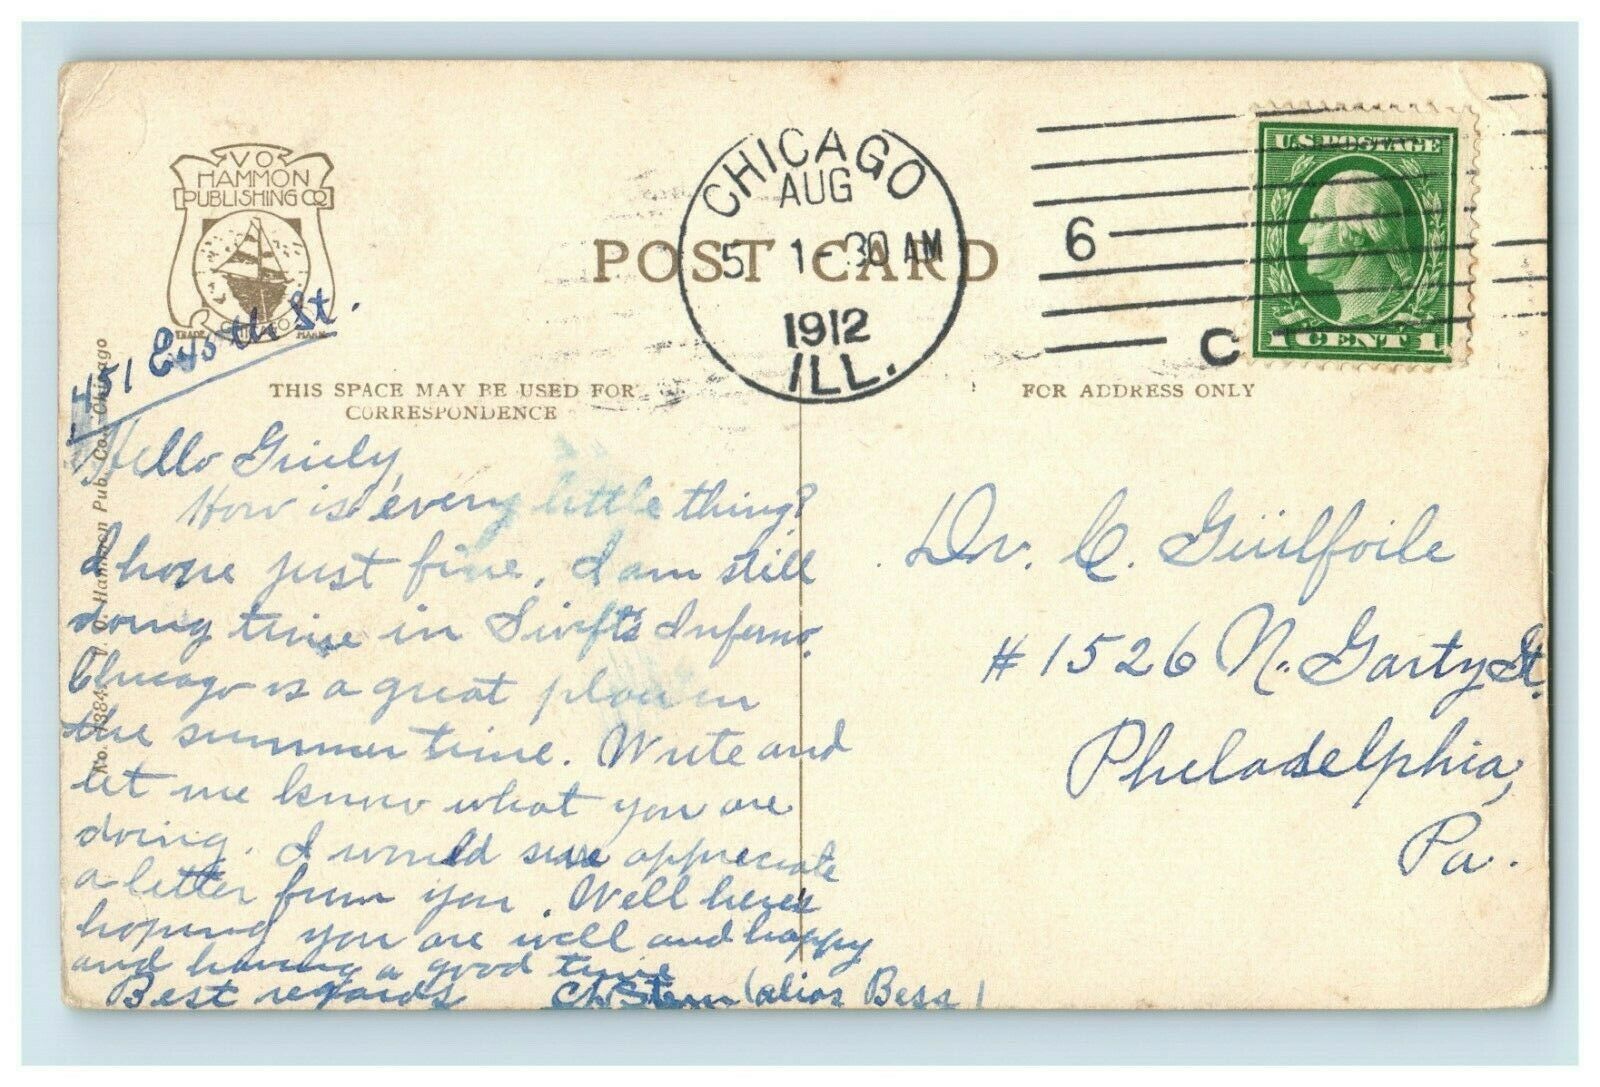 VO
HAMMON
PUBLISHING CO
CHICAGO
TRADE MARK
POST CARD
CHICAGO
AUG
5 1-30 AM
1912
ILL.
6
C
U.S. POSTAGE
1 CENT 1
451 E 45th St.
THIS SPACE MAY BE USED FOR
CORRESPONDENCE
FOR ADDRESS ONLY
Hammon Pub. Co., Chicago
Hello
How is every little thing?
I hope just fine. I am still
doing time in Swift's Inferno.
Chicago is a great place in
the summer time. Write and
let me know what you are
doing. I would sure appreciate
a letter from you. Well here's
hoping you are well and happy
and having a good time
Best regards (alias Bess)
Dr. C. Guilfoile
# 1526 N. Garty St.
Philadelphia,
Pa.